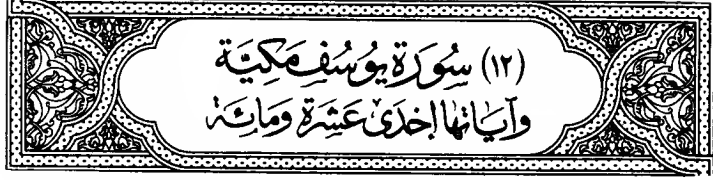 (١٢) سُورَة يُوسُف مَكِيَّة
وَآيَاتهَا إحْدَىٰ عَشرَة وَمائَة